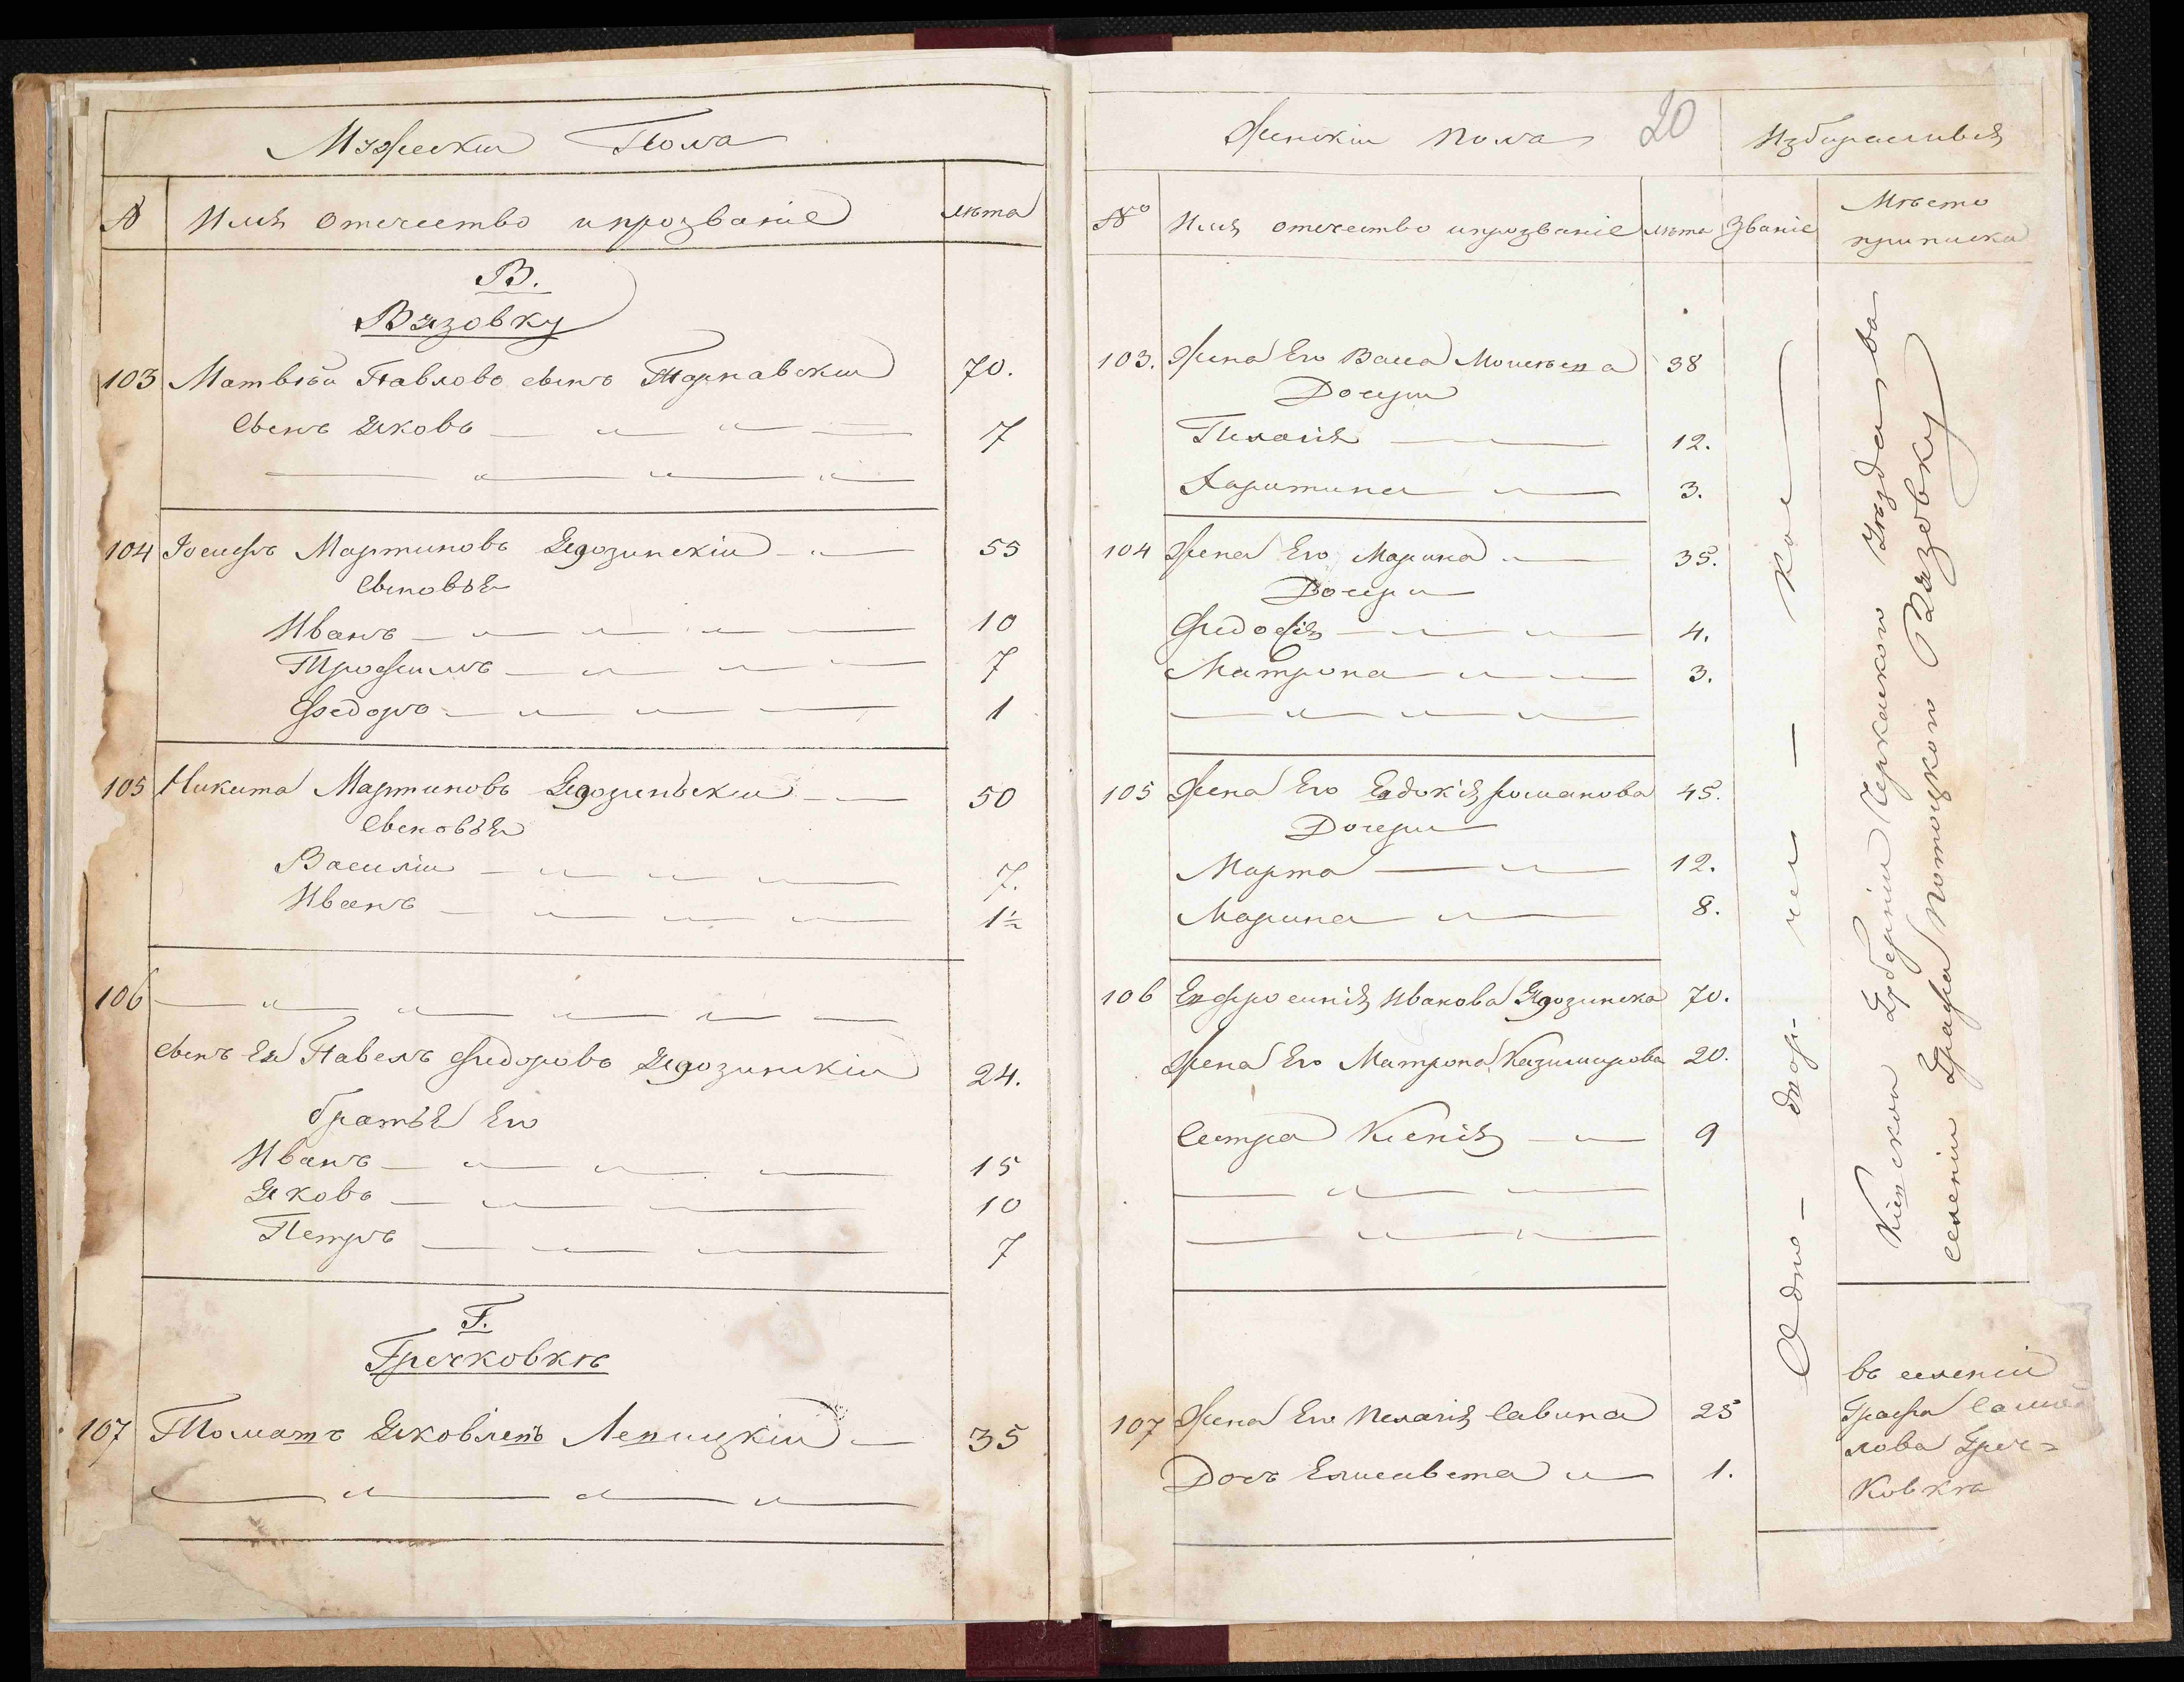 Мужеский Пола
№ Имя отечество и прозваніе лѣта
В.
Вязовку
103 Матвѣй Павлово сынъ Тарнавскій 70.
Сынъ Яковъ 7
104 Іосифъ Мартиновъ Ядозинскій 55
Сыновья
Иванъ 10
Трофимъ 7
Федоръ 1
105 Никита Мартиновъ Ядозинскій 50
Сыновья
Василій 7.
Иванъ 1½
106
сынъ Ея Павелъ Федоровъ Ядозинскій 24.
братья Его
Иванъ 15
Яковъ 10
Петръ 7
Г.
Гречковкѣ
107 Томашъ Яковлевъ Лепицкій 35
Женскій пола 20
№ Имя отечество и прозваніе лѣта Званіе Мѣсто
приписка
103. Жена Его Васса Моисѣева 38
Дочери
Пелагія 12.
Харитина 3.
104 Жена Его Марина 35.
Дочери
Федосія 4.
Матрона 3.
105 Жена Его Евдокія Романова 45.
Дочери
Марта 12.
Марина 8.
106 Ефросинія Иванова Ядозинска 70.
Жена Его Матрона Казимирова 20.
Сестра Ксенія 9
107 Жена Его Пелагія Савина 25
Дочь Елисавета 1.
Одно - двор - чес - кое
Кіевской Губерніи Черкаского Уезда
селеніи Графа Потоцкого Вязовку
въ селеніи
Графа Самой
лова Греч=
ковкѣ